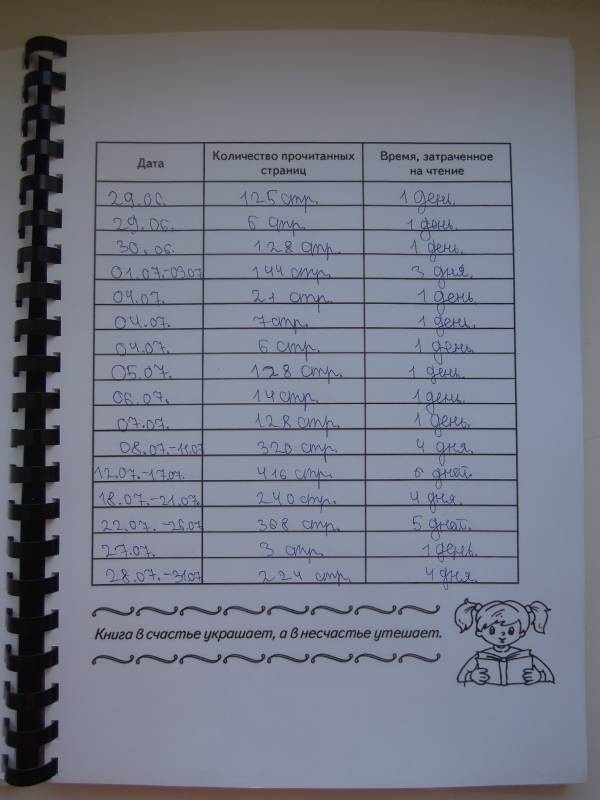 Дата Количество прочитанных страниц Время, затраченное на чтение
29.06. 125 стр. 1 день.
29.06. 6 стр. 1 день.
30.06. 128 стр. 1 день.
01.07.-03.07 144 стр. 3 дня.
04.07. 21 стр. 1 день.
04.07. 7 стр. 1 день.
04.07. 6 стр. 1 день.
05.07. 128 стр. 1 день.
06.07. 14 стр. 1 день.
07.07. 128 стр. 1 день.
08.07.-11.07 320 стр. 4 дня.
12.07.-17.07. 416 стр. 6 дней.
18.07.-21.07. 240 стр. 4 дня.
22.07.-26.07 368 стр. 5 дней.
27.07. 3 стр. 1 день.
28.07.-31.07 224 стр. 4 дня.
Книга в счастье украшает, а в несчастье утешает.